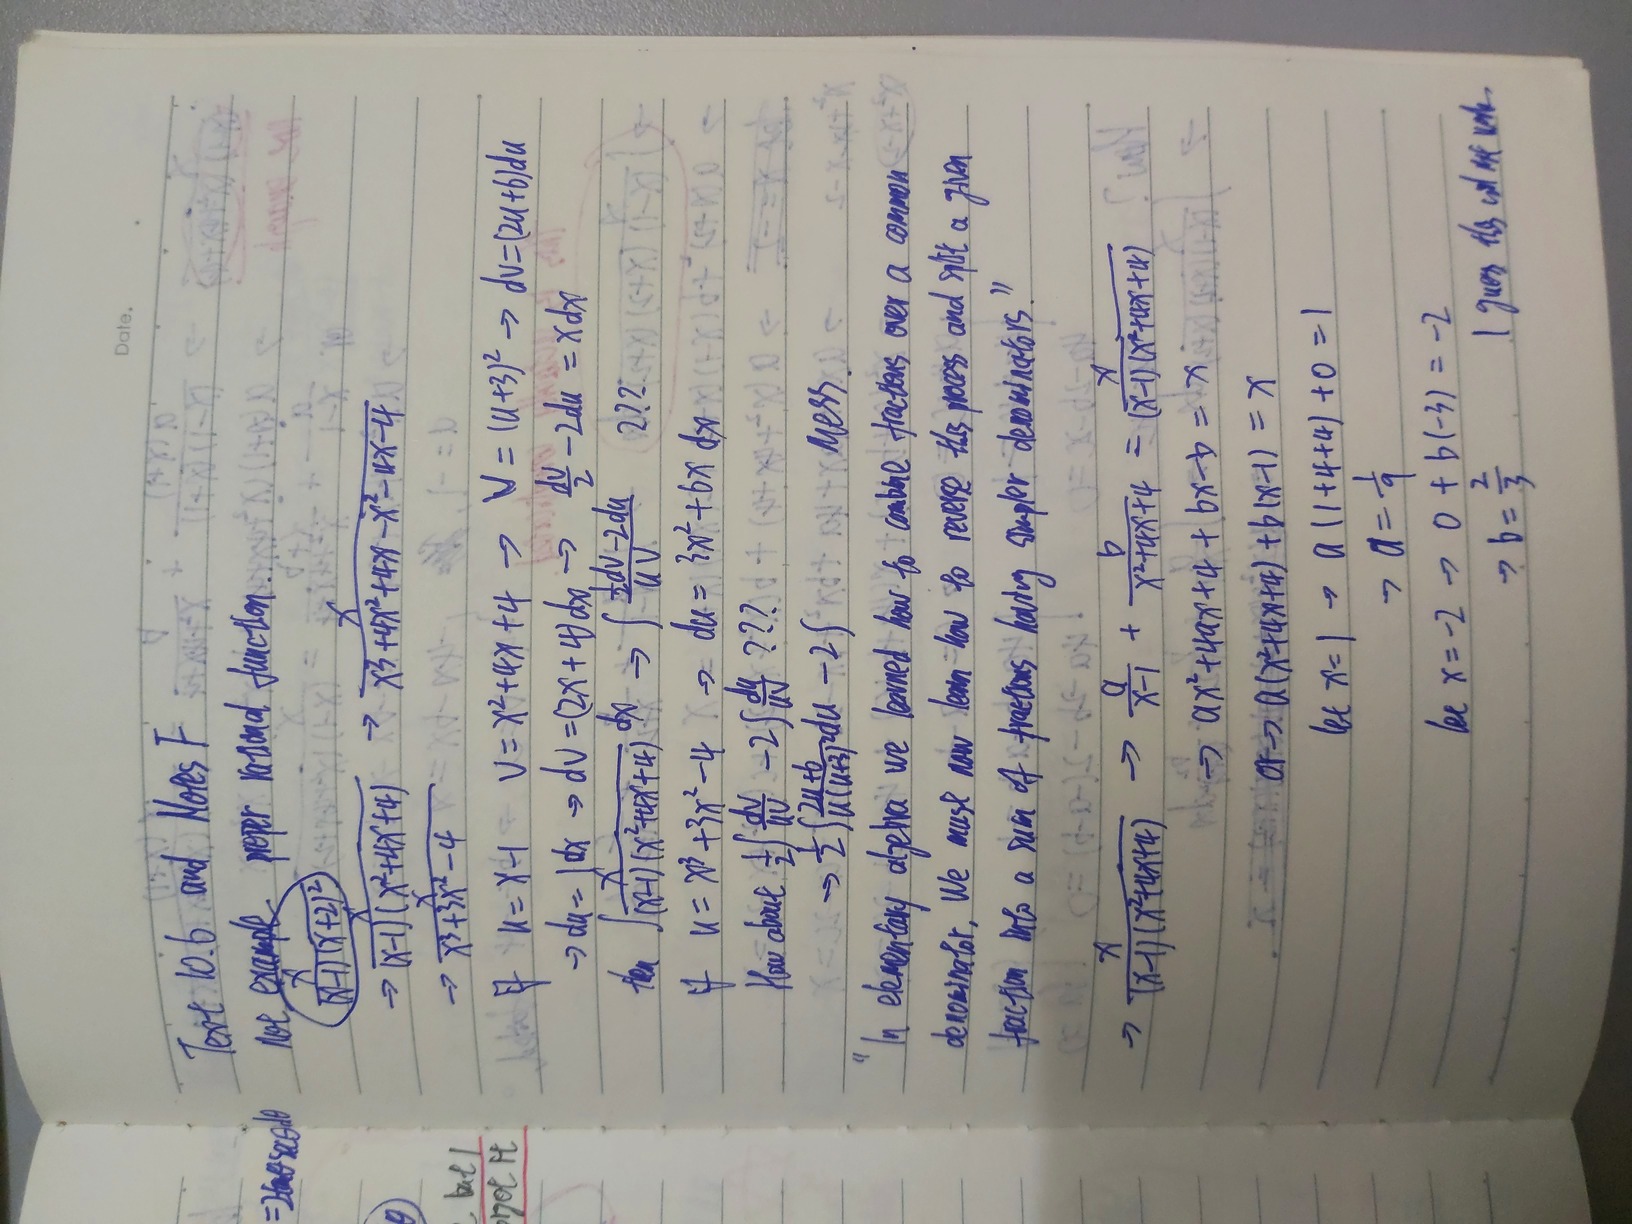 Date.
Text 10.6 and Notes F
Not example proper rational function.
x/((x-1)(x+2)²)
→ x/((x-1)(x²+4x+4)) → x/(x³+4x²+4x-x²-4x-4)
→ x/(x³+3x²-4)
If u=x-1 v=x²+4x+4 → v=(u+3)² → dv=(2u+6)du
→ du=1dx → dv=(2x+4)dx → dv/2 - 2du = xdx
then ∫ x/((x-1)(x²+4x+4)) dx → ∫ (½dv-2du)/(uv) ???
If u=x³+3x²-4 → du=3x²+6x dx
How about ½∫ dv/(uv) - 2∫ du/(uv) ???
→ ½∫ (2u+6)/(u(u+3)²) du - 2∫ Mess.
"In elementary algebra we learned how to combine fractions over a common
denominator, We must now learn how to reverse this process and split a given
fraction into a sum of fractions having simpler denominators."
→ x/((x-1)(x²+4x+4)) → a/(x-1) + b/(x²+4x+4) = x/((x-1)(x²+4x+4))
→ ax²+4ax+4+bx-b=x
or → a(x²+4x+4)+b(x-1)=x
let x=1 → a(1+4+4)+0=1
→ a=1/9
let x=-2 → 0+b(-3)=-2
→ b=2/3 I guess this will not work.
=2tanθsecθdθ
θ
but I
got it